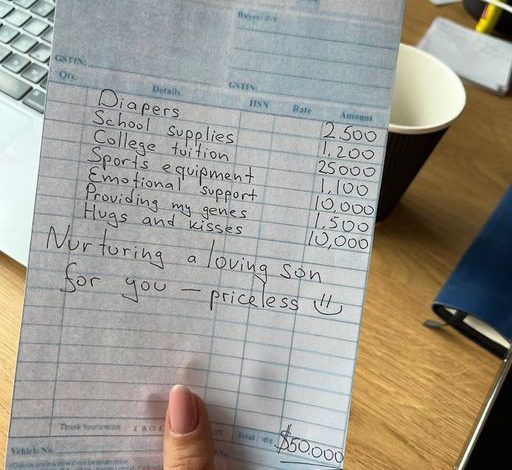 Buyer's
GSTIN:
GSTIN:
Qty. Details HSN Rate Amount
Diapers 2,500
School supplies 1,200
College tuition 25000
Sports equipment 1,100
Emotional support 10,000
Providing my genes 1,500
Hugs and kisses 10,000
Nurturing a loving son
for you – priceless
Total
$50.000
Vehicle No